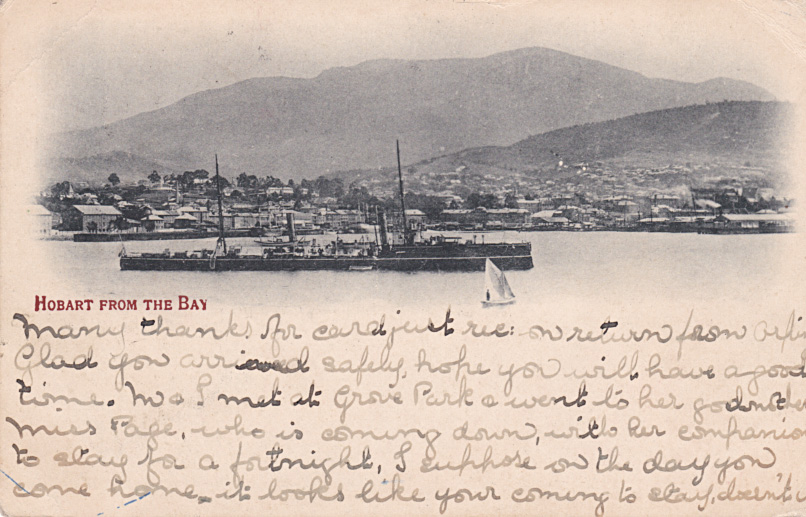 HOBART FROM THE BAY
Many thanks for card just rec: on return from
Glad you arrived safely, hope you will have a good
time. M & I met at Grove Park & went to her godmother
Miss Page, who is coming down, with her companion
to stay for a fortnight, I suppose on the day you
come home, it looks like your coming to stay, doesn't